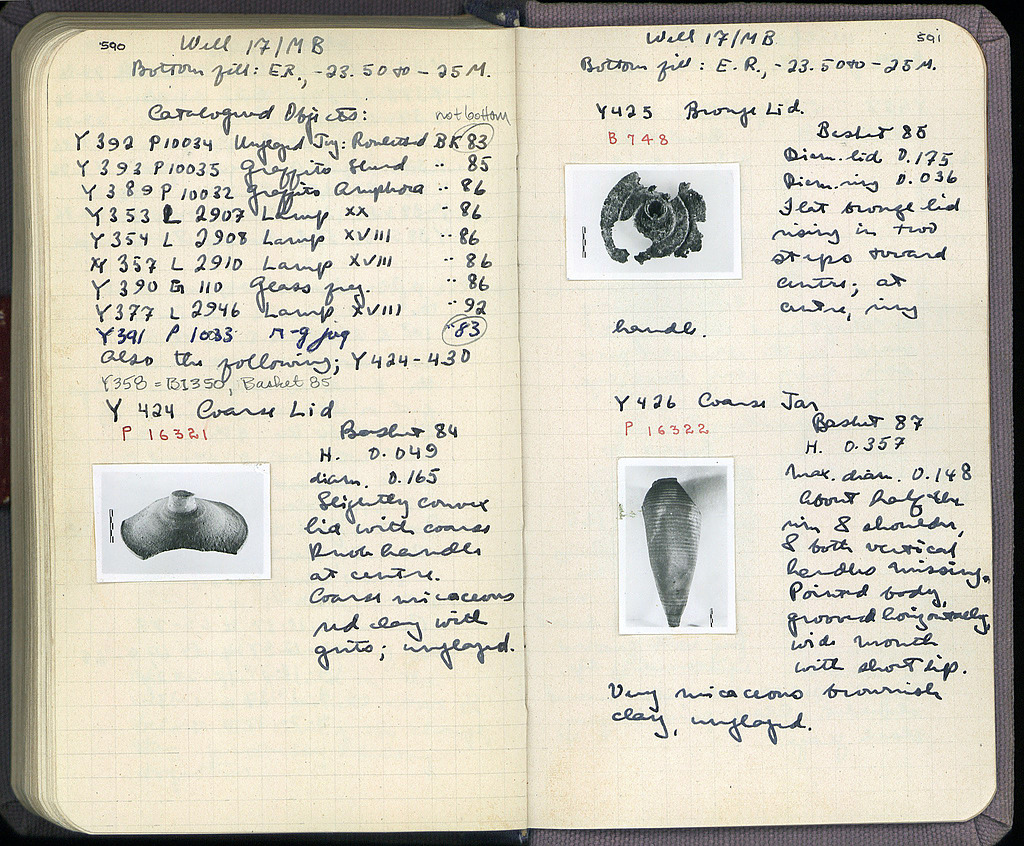 590
Well 17/MB
Bottom fill: E.R., -23.50 to -25 M.
Catalogued Objects:
not bottom
Y 392 P10034 Unglazed Jug: Rouletted BK 83
Y 393 P10035 Graffito Sherd " 85
Y 389 P 10032 Graffito Amphora " 86
Y 353 L 2907 Lamp XX " 86
Y 354 L 2908 Lamp XVIII " 86
Y 357 L 2910 Lamp XVIII " 86
Y 390 G 110 Glass frg. " 86
Y 377 L 2946 Lamp XVIII " 92
Y 391 P 10033 r-g jug " 83
Also the following; Y 424-430
Y358 = BI350, Basket 85
Y 424 Coarse Lid
P 16321
Basket 84
H. 0.049
diam. 0.165
Slightly convex
lid with coarse
knob handle
at centre.
Coarse micaceous
red clay with
grits; unglazed.
591
Well 17/MB
Bottom fill: E.R., -23.50 to -25 M.
Y425 Bronze Lid.
B 748
Basket 85
Diam. lid 0.175
Diam. ring 0.036
Flat bronze lid
rising in two
steps toward
centre; at
centre, ring
handle.
Y 426 Coarse Jar
P 16322
Basket 87
H. 0.357
Max. diam. 0.148
About half the
rim & shoulder,
& both vertical
handles missing.
Pointed body,
grooved horizontally,
wide mouth
with short lip.
Very micaceous brownish
clay, unglazed.